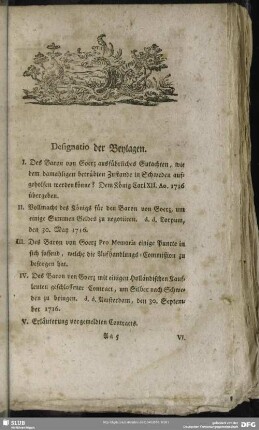 Designatio der Beylagen.
I. Des Baron von Goertz ausführliches Gutachten, wie
dem damahligen betrübten Zustande in Schweden auf-
geholfen werden könne? Dem König Carl XII. Ao. 1716
übergeben.
II. Vollmacht des Königs für den Baron von Goertz, um
einige Summen Geldes zu negotiiren. d. d.
den 30. May 1716.
III. Des Baron von Goertz Pro Memoria einige Puncte in
sich fassend, welche die Upshandlungs-Commission zu
besorgen hat.
IV. Des Baron von Goertz mit einigen Holländischen Kauf-
leuten geschlossener Contract, um Silber nach Schwe-
den zu bringen. d. d. Amsterdam, den 30. Septem-
ber 1716.
V. Erläuterung vorgemeldten Contracts.
VI.
SLUB
DFG